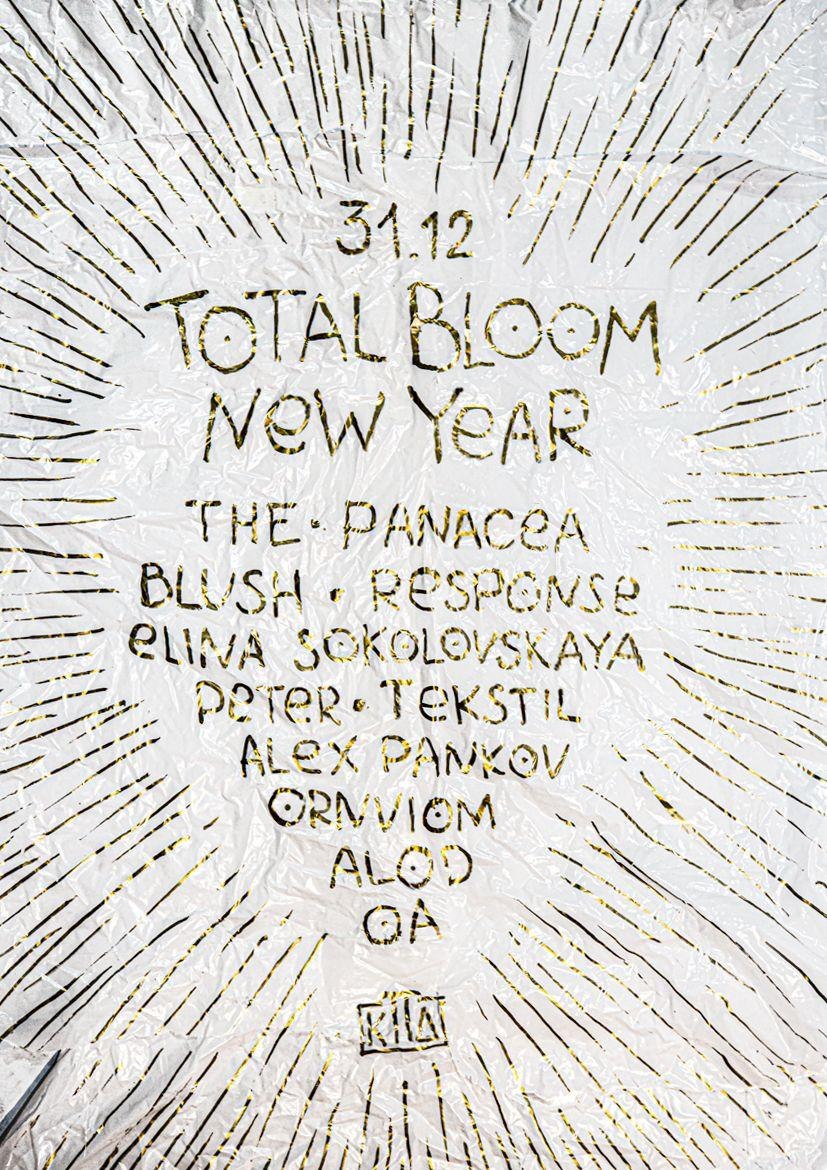 31.12
TOTAL BLOOM
NeW YeAR
THE • PANACeA
BLUSH • ReSPONSe
eLINA SOKOLOVSKAYA
PeTeR • TeKSTIL
ALeX PANKOV
ORNVIOM
ALOD
OA